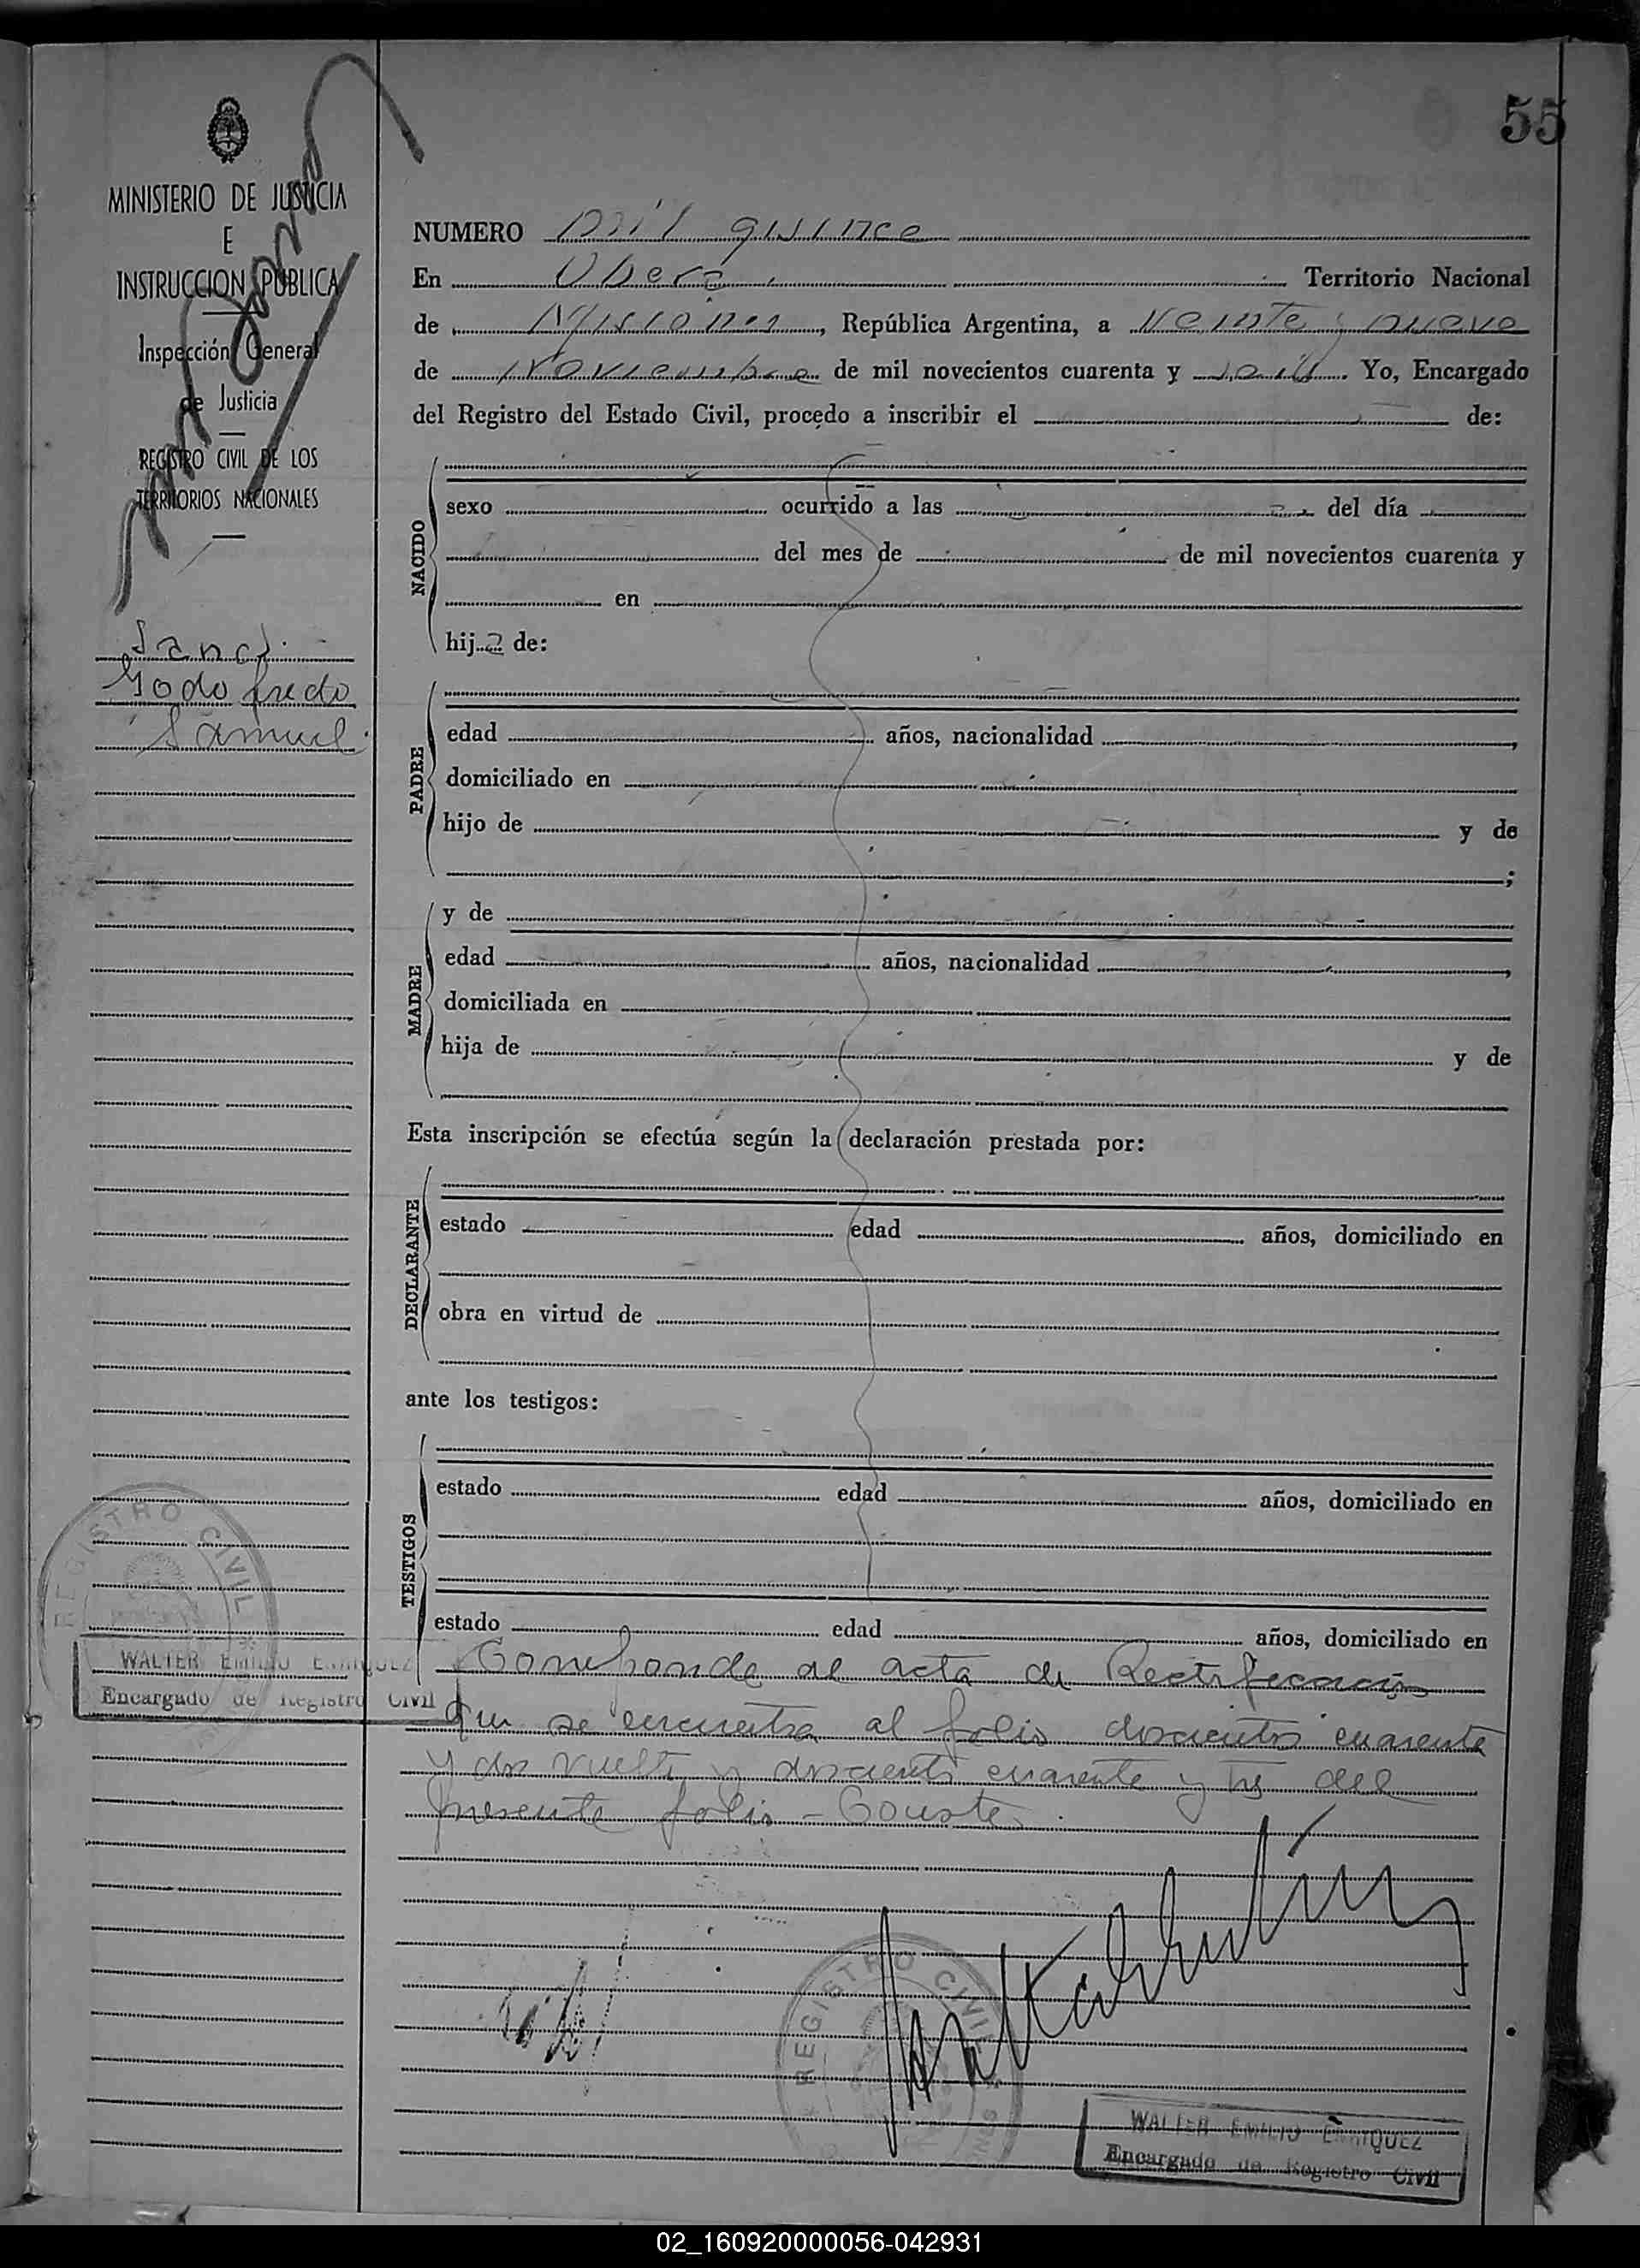 55
MINISTERIO DE JUSTICIA
E
INSTRUCCION PUBLICA
Inspección General
de Justicia
REGISTRO CIVIL DE LOS
TERRITORIOS NACIONALES
Godofredo
Samuel
NUMERO mil quince
En Oberá Territorio Nacional
de Misiones, República Argentina, a veinte y nueve
de noviembre de mil novecientos cuarenta y seis. Yo, Encargado
del Registro del Estado Civil, procedo a inscribir el de:
NACIDO
sexo ocurrido a las del día
del mes de de mil novecientos cuarenta y
en
hij de:
PADRE
edad años, nacionalidad
domiciliado en
hijo de y de
;
MADRE
y de
edad años, nacionalidad
domiciliada en
hija de y de
Esta inscripción se efectúa según la declaración prestada por:
DECLARANTE
estado edad años, domiciliado en
obra en virtud de
ante los testigos:
TESTIGOS
estado edad años, domiciliado en
estado edad años, domiciliado en
Corresponde al acta de Rectificación
que se encuentra al folio doscientos cuarenta
y dos vuelta y doscientos cuarenta y tres del
presente folio - Conste.
REGISTRO CIVIL
WALTER EMILIO ENRIQUEZ
Encargado de Registro Civil
REGISTRO CIVIL
WALTER EMILIO ENRIQUEZ
Encargado de Registro Civil
02_160920000056-042931